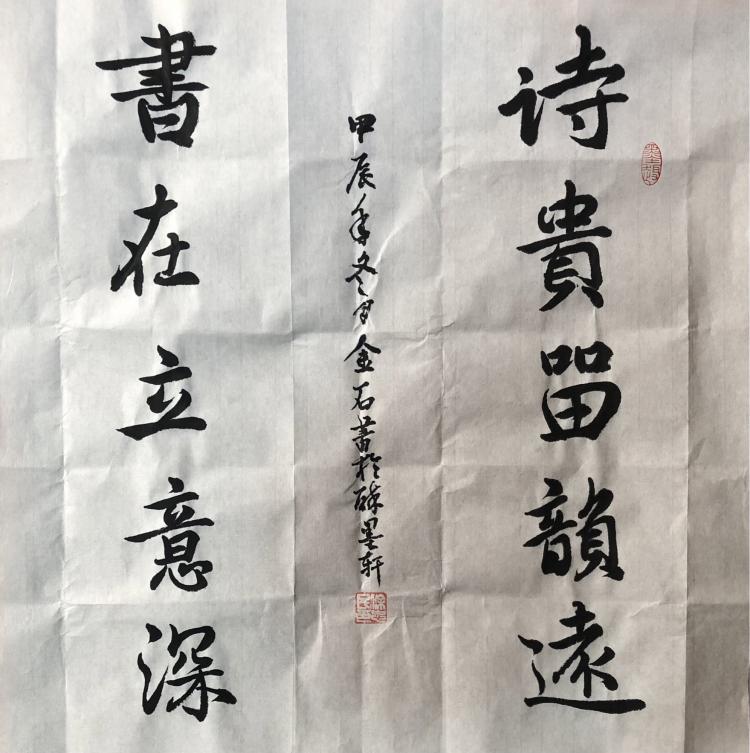 诗貴畱韻遠
書在立意深
甲辰年冬月金石書於醉墨轩